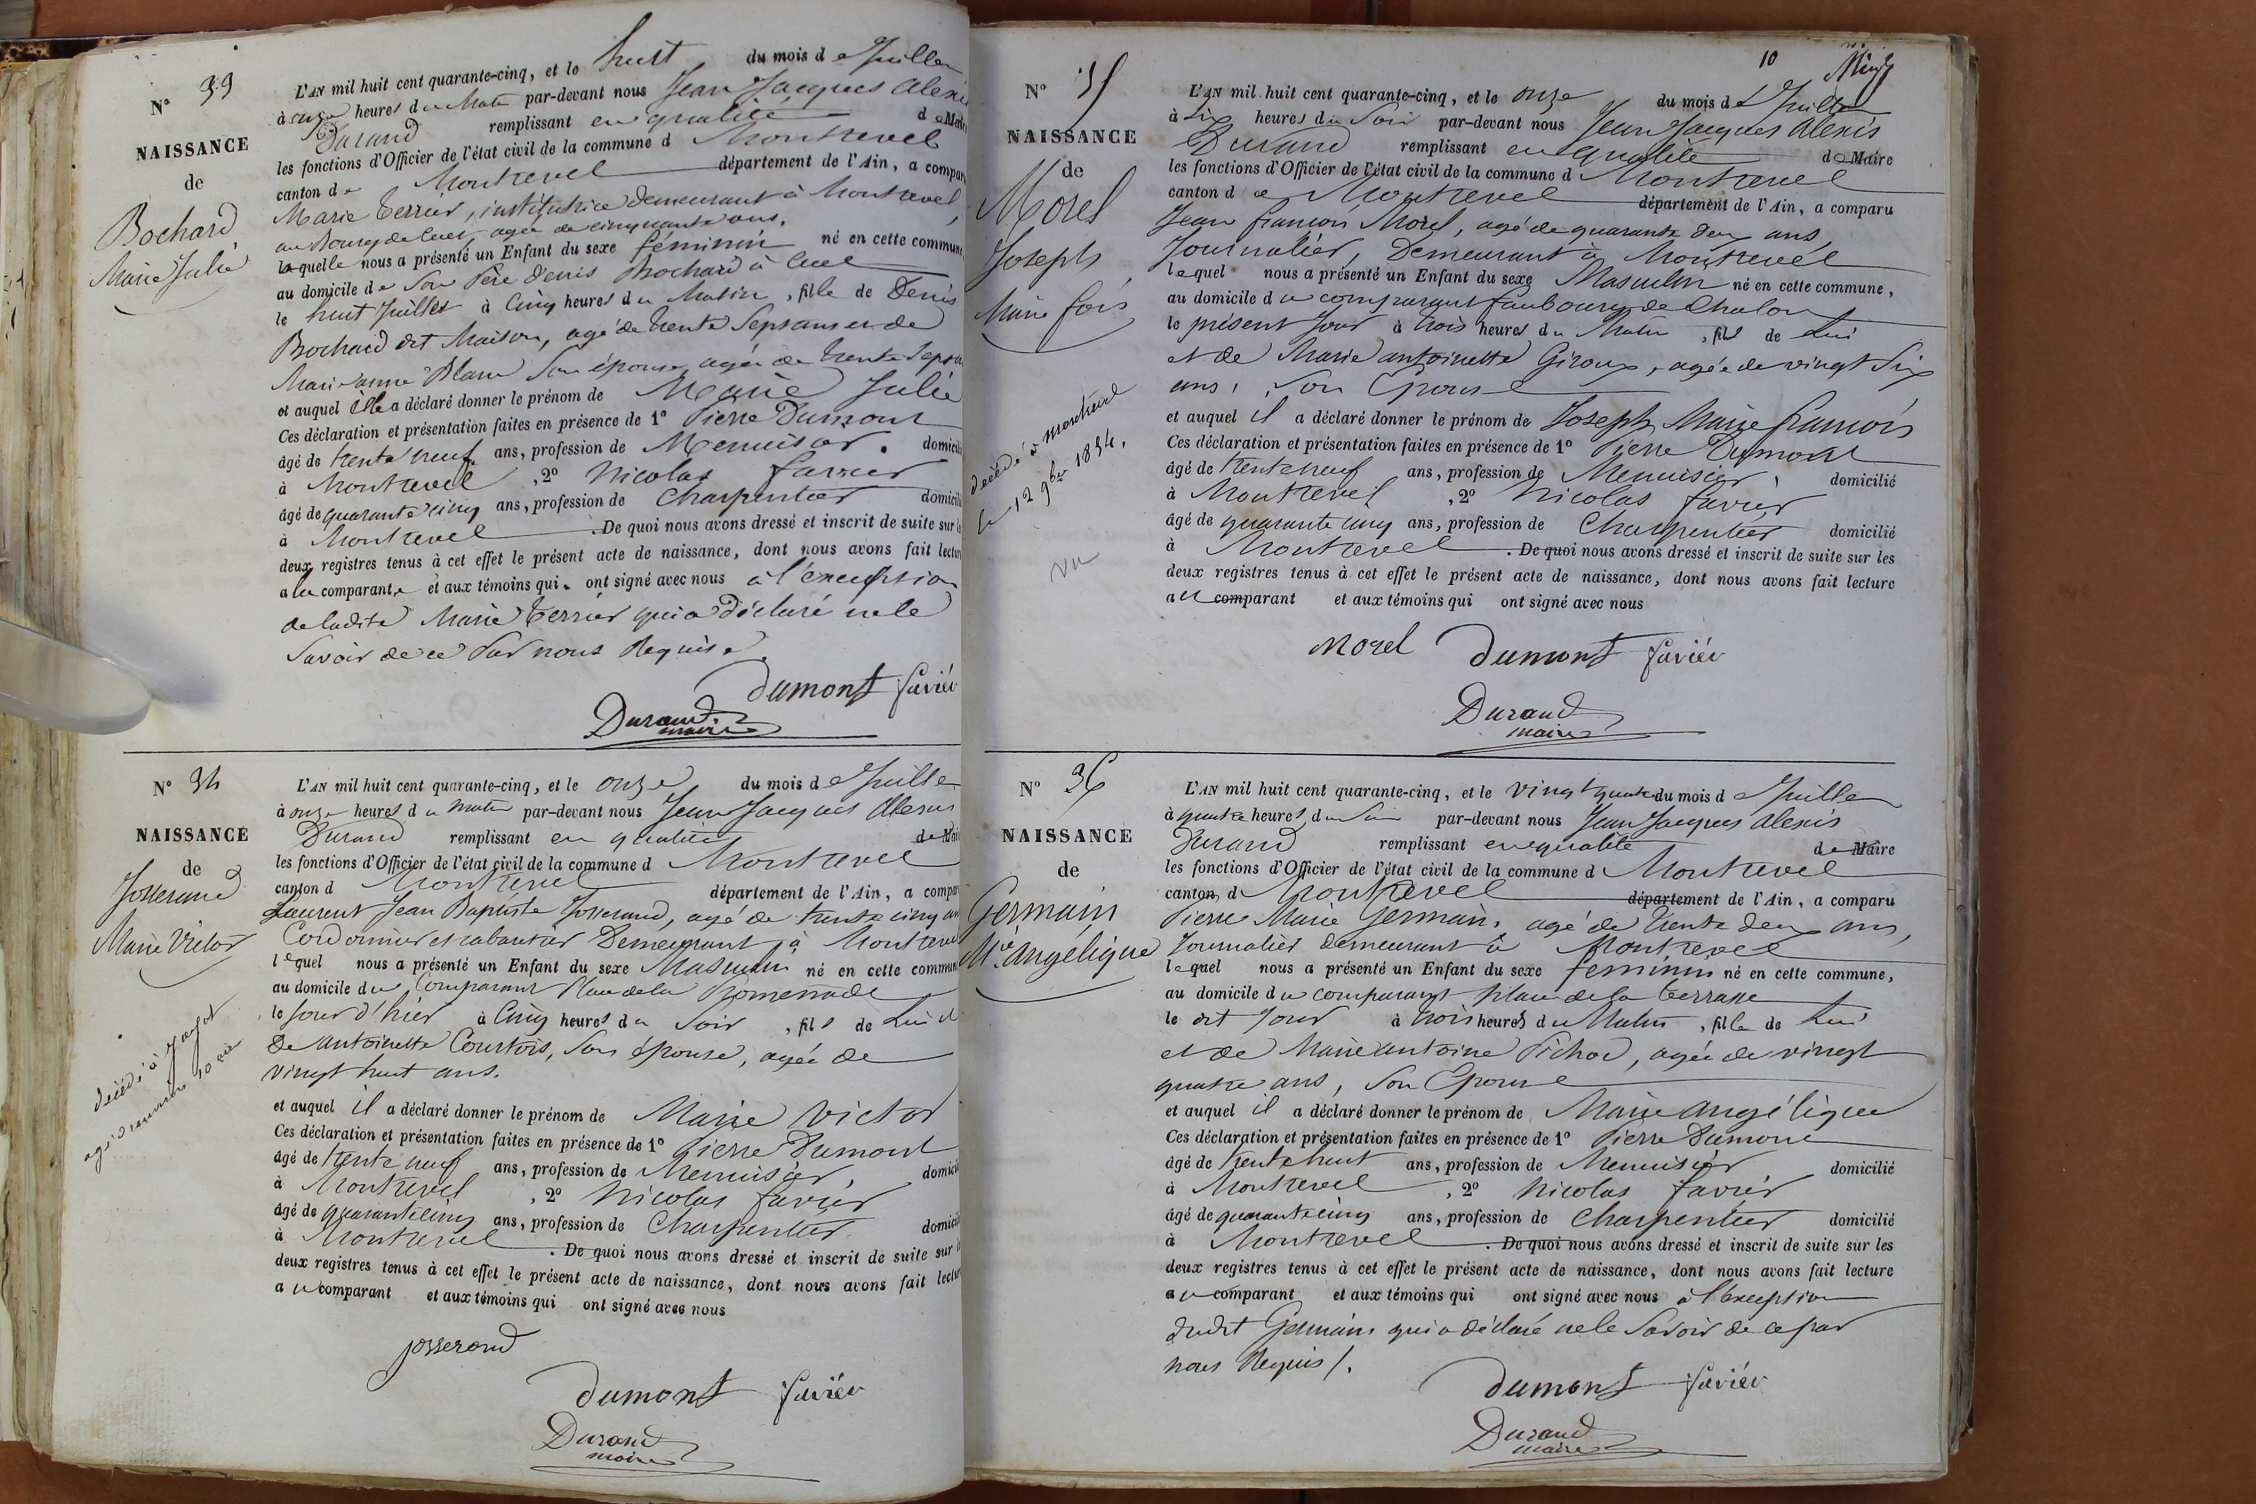 N° 33
NAISSANCE
de
Bochard
Marie Julie
L'AN mil huit cent quarante-cinq, et le huit du mois de Juillet
à onze heures du Matin par-devant nous Jean Jacques Alexis
Durand remplissant en qualité de Maire
les fonctions d'Officier de l'état civil de la commune d Montrevel
canton de Montrevel département de l'Ain, a comparu
Marie Terrier, institutrice demeurant à Montrevel,
au Bourg de Cuet, agée de cinquante ans,
laquelle nous a présenté un Enfant du sexe féminin né en cette commune
au domicile de Son Père Denis Bochard à Cuet
le huit Juillet à Cinq heures du Matin, fille de Denis
Bochard dit Maison, agé de trente Sept ans et de
Marianne Blanc Son épouse agée de trente Sept
et auquel elle a déclaré donner le prénom de Marie Julie
Ces déclaration et présentation faites en présence de 1° Pierre Dumont
âgé de trente neuf ans, profession de Menuisier domicilié
à Montrevel, 2° Nicolas favier
âgé de quarante cinq ans, profession de Charpentier domicilié
à Montrevel. De quoi nous avons dressé et inscrit de suite sur
deux registres tenus à cet effet le présent acte de naissance, dont nous avons fait lecture
a la comparante et aux témoins qui ont signé avec nous à l'exception
de ladite Marie Terrier qui a Déclaré ne le
Savoir de ce Par nous Requise.
Dumont favier
Durand
maire
N° 34
NAISSANCE
de
Josserand
Marie Victor
décédé à Jayat
L'AN mil huit cent quarante-cinq, et le onze du mois de Juillet
à onze heures du matin par-devant nous Jean Jacques Alexis
Durand remplissant en qualité de Maire
les fonctions d'Officier de l'état civil de la commune d Montrevel
canton d Montrevel département de l'Ain, a comparu
Laurent Jean Baptiste Josserand, agé de trente cinq ans
Cordonnier et cabaretier Demeurant à Montrevel
lequel nous a présenté un Enfant du sexe Masculin né en cette commune
au domicile du Comparant Place de la Promenade
le Jour d'hier à Cinq heures du Soir, fils de Lui et
De Antoinette Courtois, Son épouse, agée de
vingt huit ans.
et auquel il a déclaré donner le prénom de Marie Victor
Ces déclaration et présentation faites en présence de 1° Pierre Dumont
âgé de trente neuf ans, profession de Menuisier, domicilié
à Montrevel, 2° Nicolas favier
âgé de quarante cinq ans, profession de Charpentier domicilié
à Montrevel. De quoi nous avons dressé et inscrit de suite sur
deux registres tenus à cet effet le présent acte de naissance, dont nous avons fait lecture
a u comparant et aux témoins qui ont signé avec nous
josserand
Dumont favier
Durand
maire
10
N° 35
NAISSANCE
de
Morel
Joseph
Marie fois
décédé à montrevel
le 12 9bre 1854.
vu
L'AN mil huit cent quarante-cinq, et le onze du mois de Juillet
à Six heures du Soir par-devant nous Jean Jacques Alexis
Durand remplissant en qualité de Maire
les fonctions d'Officier de l'état civil de la commune d Montrevel
canton d e Montrevel département de l'Ain, a comparu
Jean françois Morel, agé de quarante deux ans,
Journalier, Demeurant à Montrevel
lequel nous a présenté un Enfant du sexe Masculin né en cette commune,
au domicile du comparant faubourg de Chalon
le présent Jour à trois heures du Matin, fils de Lui
et de Marie antoinette Giroux, agée de vingt Six
ans, Son Epouse
et auquel il a déclaré donner le prénom de Joseph Marie francois
Ces déclaration et présentation faites en présence de 1° Pierre Dumont
âgé de trente neuf ans, profession de Menuisier, domicilié
à Montrevel, 2° Nicolas favier
âgé de quarante cinq ans, profession de Charpentier domicilié
à Montrevel. De quoi nous avons dressé et inscrit de suite sur les
deux registres tenus à cet effet le présent acte de naissance, dont nous avons fait lecture
a u comparant et aux témoins qui ont signé avec nous
Morel Dumont favier
Durand
maire
N° 36
NAISSANCE
de
Germain
Mie Angelique
L'AN mil huit cent quarante-cinq, et le vingt quatre du mois de Juillet
à quatre heures du Soir par-devant nous Jean Jacques Alexis
Durand remplissant en qualité de Maire
les fonctions d'Officier de l'état civil de la commune d Montrevel
canton d Montrevel département de l'Ain, a comparu
Pierre Marie Germain, agé de trente deux ans,
Journalier demeurant à Montrevel
lequel nous a présenté un Enfant du sexe féminin né en cette commune,
au domicile du comparant place de la terrasse
le dit Jour à trois heures du Matin, fille de Lui
et de Marie antoine Pichod, agée de vingt
quatre ans, Son Epouse
et auquel il a déclaré donner le prénom de Marie Angélique
Ces déclaration et présentation faites en présence de 1° Pierre Dumont
âgé de trente huit ans, profession de Menuisier, domicilié
à Montrevel, 2° Nicolas favier
âgé de quarante cinq ans, profession de Charpentier domicilié
à Montrevel. De quoi nous avons dressé et inscrit de suite sur les
deux registres tenus à cet effet le présent acte de naissance, dont nous avons fait lecture
a u comparant et aux témoins qui ont signé avec nous à l'exception
dudit Germain qui a déclaré ne le Savoir de ce par
nous Requis /.
Dumont favier
Durand
maire